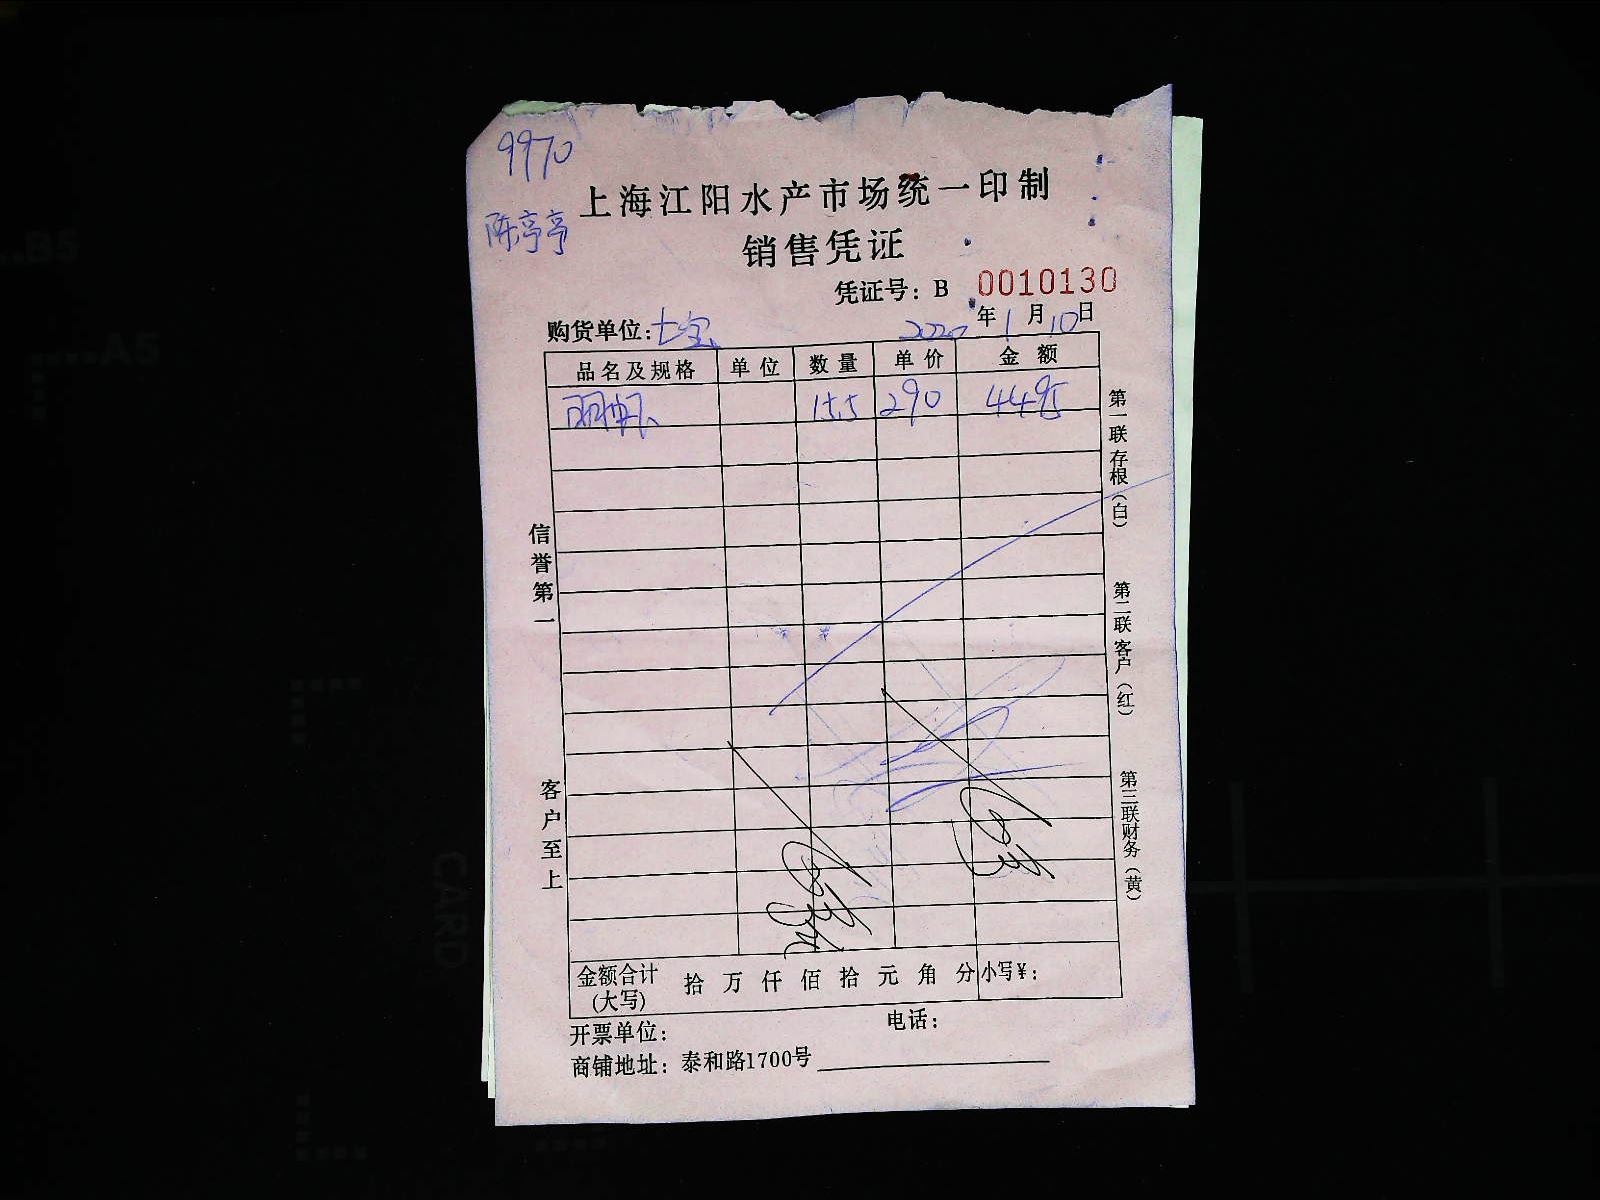 9970
陈亭亭
上海江阳水产市场统一印制
销售凭证
凭证号：B 0010130
购货单位：七宝 2020年1月10日
品名及规格 单位 数量 单价 金额
15.5 290 4495
第一联存根（白）
第二联客户（红）
第三联财务（黄）
信誉第一
客户至上
金额合计(大写) 拾 万 仟 佰 拾 元 角 分 小写¥：
开票单位： 电话：
商铺地址：泰和路1700号
B5
A5
CARD